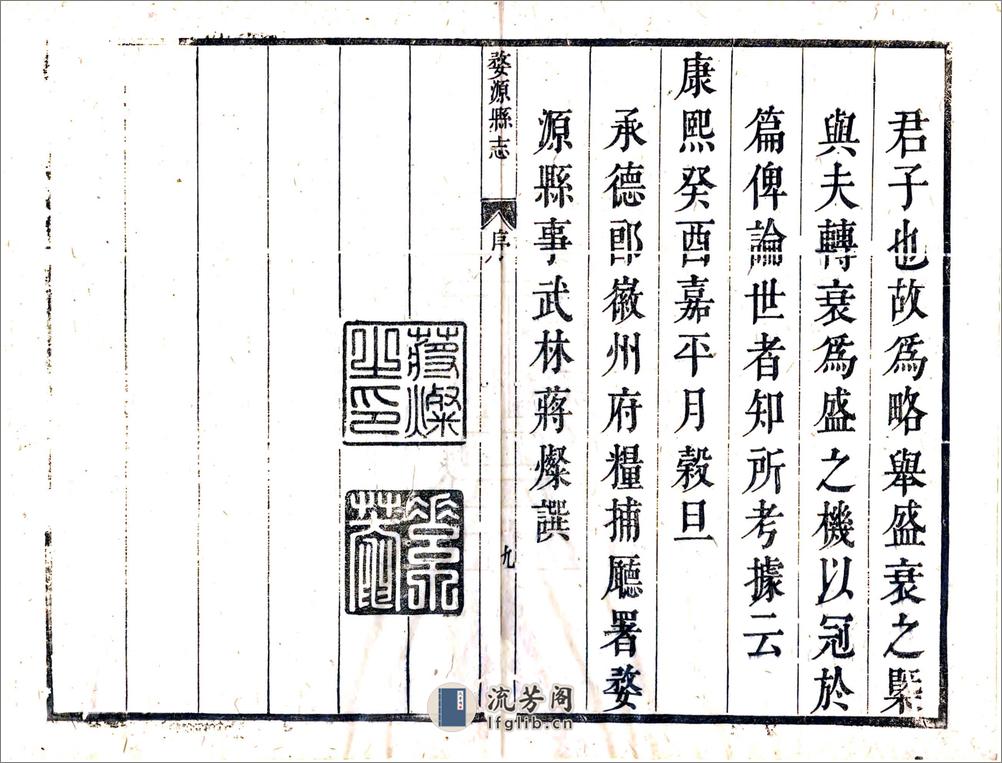 君子也故爲略舉盛衰之槩
與夫轉衰爲盛之機以冠於
篇俾論世者知所考據云
康熙癸酉嘉平月穀旦
承德郎徽州府糧捕廳署婺
源縣事武林蔣燦譔
婺源縣志
序
九
蔣燦之印
流芳阁
lfglib.cn